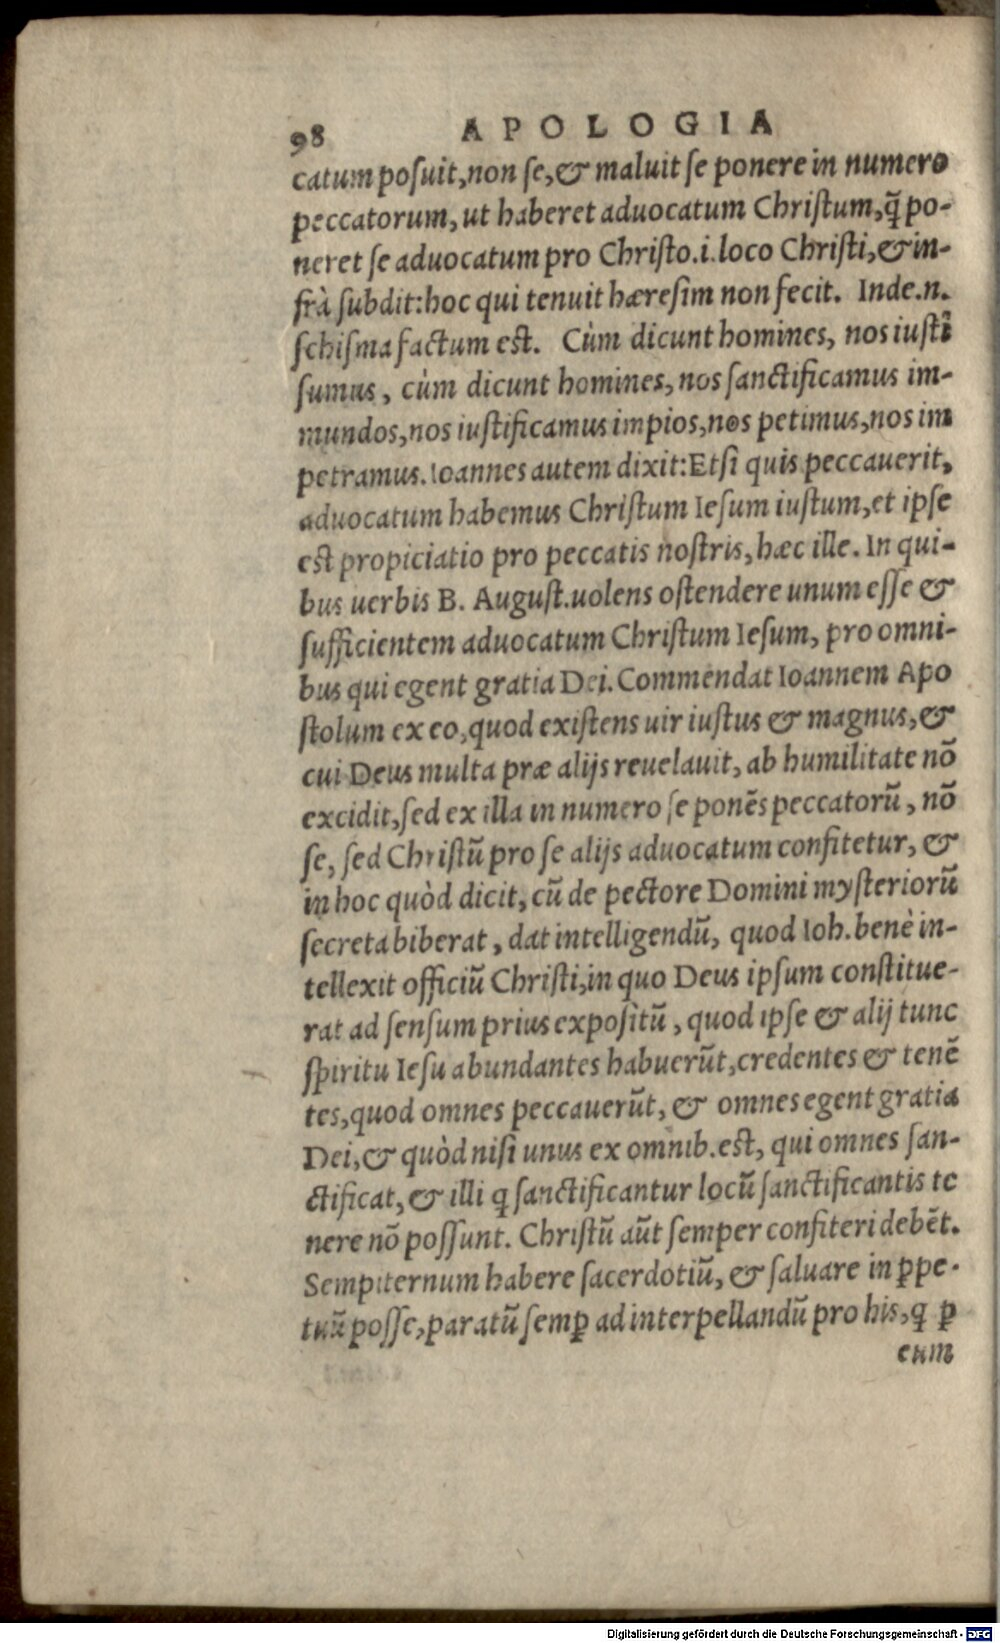 98 APOLOGIA
catum posuit, non se, & maluit se ponere in numero
peccatorum, ut haberet aduocatum Christum, q̃ po-
neret se aduocatum pro Christo .i. loco Christi, & in-
frà subdit: hoc qui tenuit hæresim non fecit. Inde .n.
schisma factum est. Cùm dicunt homines, nos iusti
sumus, cùm dicunt homines, nos sanctificamus im-
mundos, nos iustificamus impios, nos petimus, nos im
petramus. Ioannes autem dixit: Etsi quis peccauerit,
aduocatum habemus Christum Iesum iustum, et ipse
est propiciatio pro peccatis nostris, hæc ille. In qui-
bus uerbis B. August. uolens ostendere unum esse &
sufficientem aduocatum Christum Iesum, pro omni-
bus qui egent gratia Dei. Commendat Ioannem Apo
stolum ex eo, quod existens uir iustus & magnus, &
cui Deus multa præ alijs reuelauit, ab humilitate nõ
excidit, sed ex illa in numero se ponẽs peccatorũ, nõ
se, sed Christũ pro se alijs aduocatum confitetur, &
in hoc quòd dicit, cũ de pectore Domini mysteriorũ
secreta biberat, dat intelligendũ, quod Ioh. benè in-
tellexit officiũ Christi, in quo Deus ipsum constitue-
rat ad sensum prius expositũ, quod ipse & alij tunc
spiritu Iesu abundantes habuerũt, credentes & tenẽ
tes, quod omnes peccauerũt, & omnes egent gratia
Dei, & quòd nisi unus ex omnib. est, qui omnes san-
ctificat, & illi ꝗ sanctificantur locũ sanctificantis te
nere nõ possunt. Christũ aũt semper confiteri debẽt.
Sempiternum habere sacerdotiũ, & saluare in ꝑpe-
tuũ posse, paratũ semꝑ ad interpellandũ pro his, ꝗ ꝑ
eum
Digitalisierung gefördert durch die Deutsche Forschungsgemeinschaft - DFG